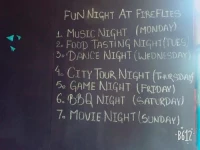 FUN NIGHT AT FIREFLIES
1. MUSIC NIGHT (MONDAY)
2. FOOD TASTING NIGHT (TUES
3. DANCE NIGHT (WEDNESDAY)
4. CITY TOUR NIGHT (THURSDAY)
5. GAME NIGHT (FRIDAY)
6. BBQ NIGHT (SATURDAY)
7. MOVIE NIGHT (SUNDAY)